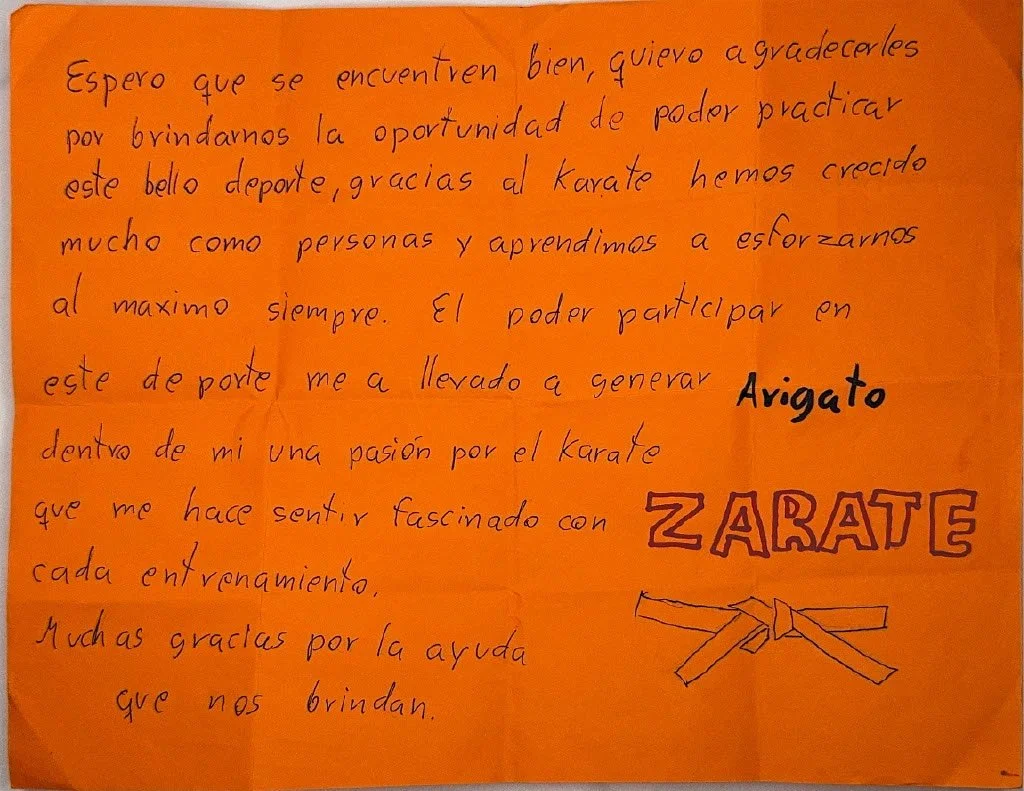 Espero que se encuentren bien, quiero agradecerles
por brindarnos la oportunidad de poder practicar
este bello deporte, gracias al karate hemos crecido
mucho como personas y aprendimos a esforzarnos
al maximo siempre. El poder participar en
este deporte me a llevado a generar
dentro de mi una pasión por el karate
que me hace sentir fascinado con
cada entrenamiento.
Muchas gracias por la ayuda
que nos brindan.
Arigato
ZARATE